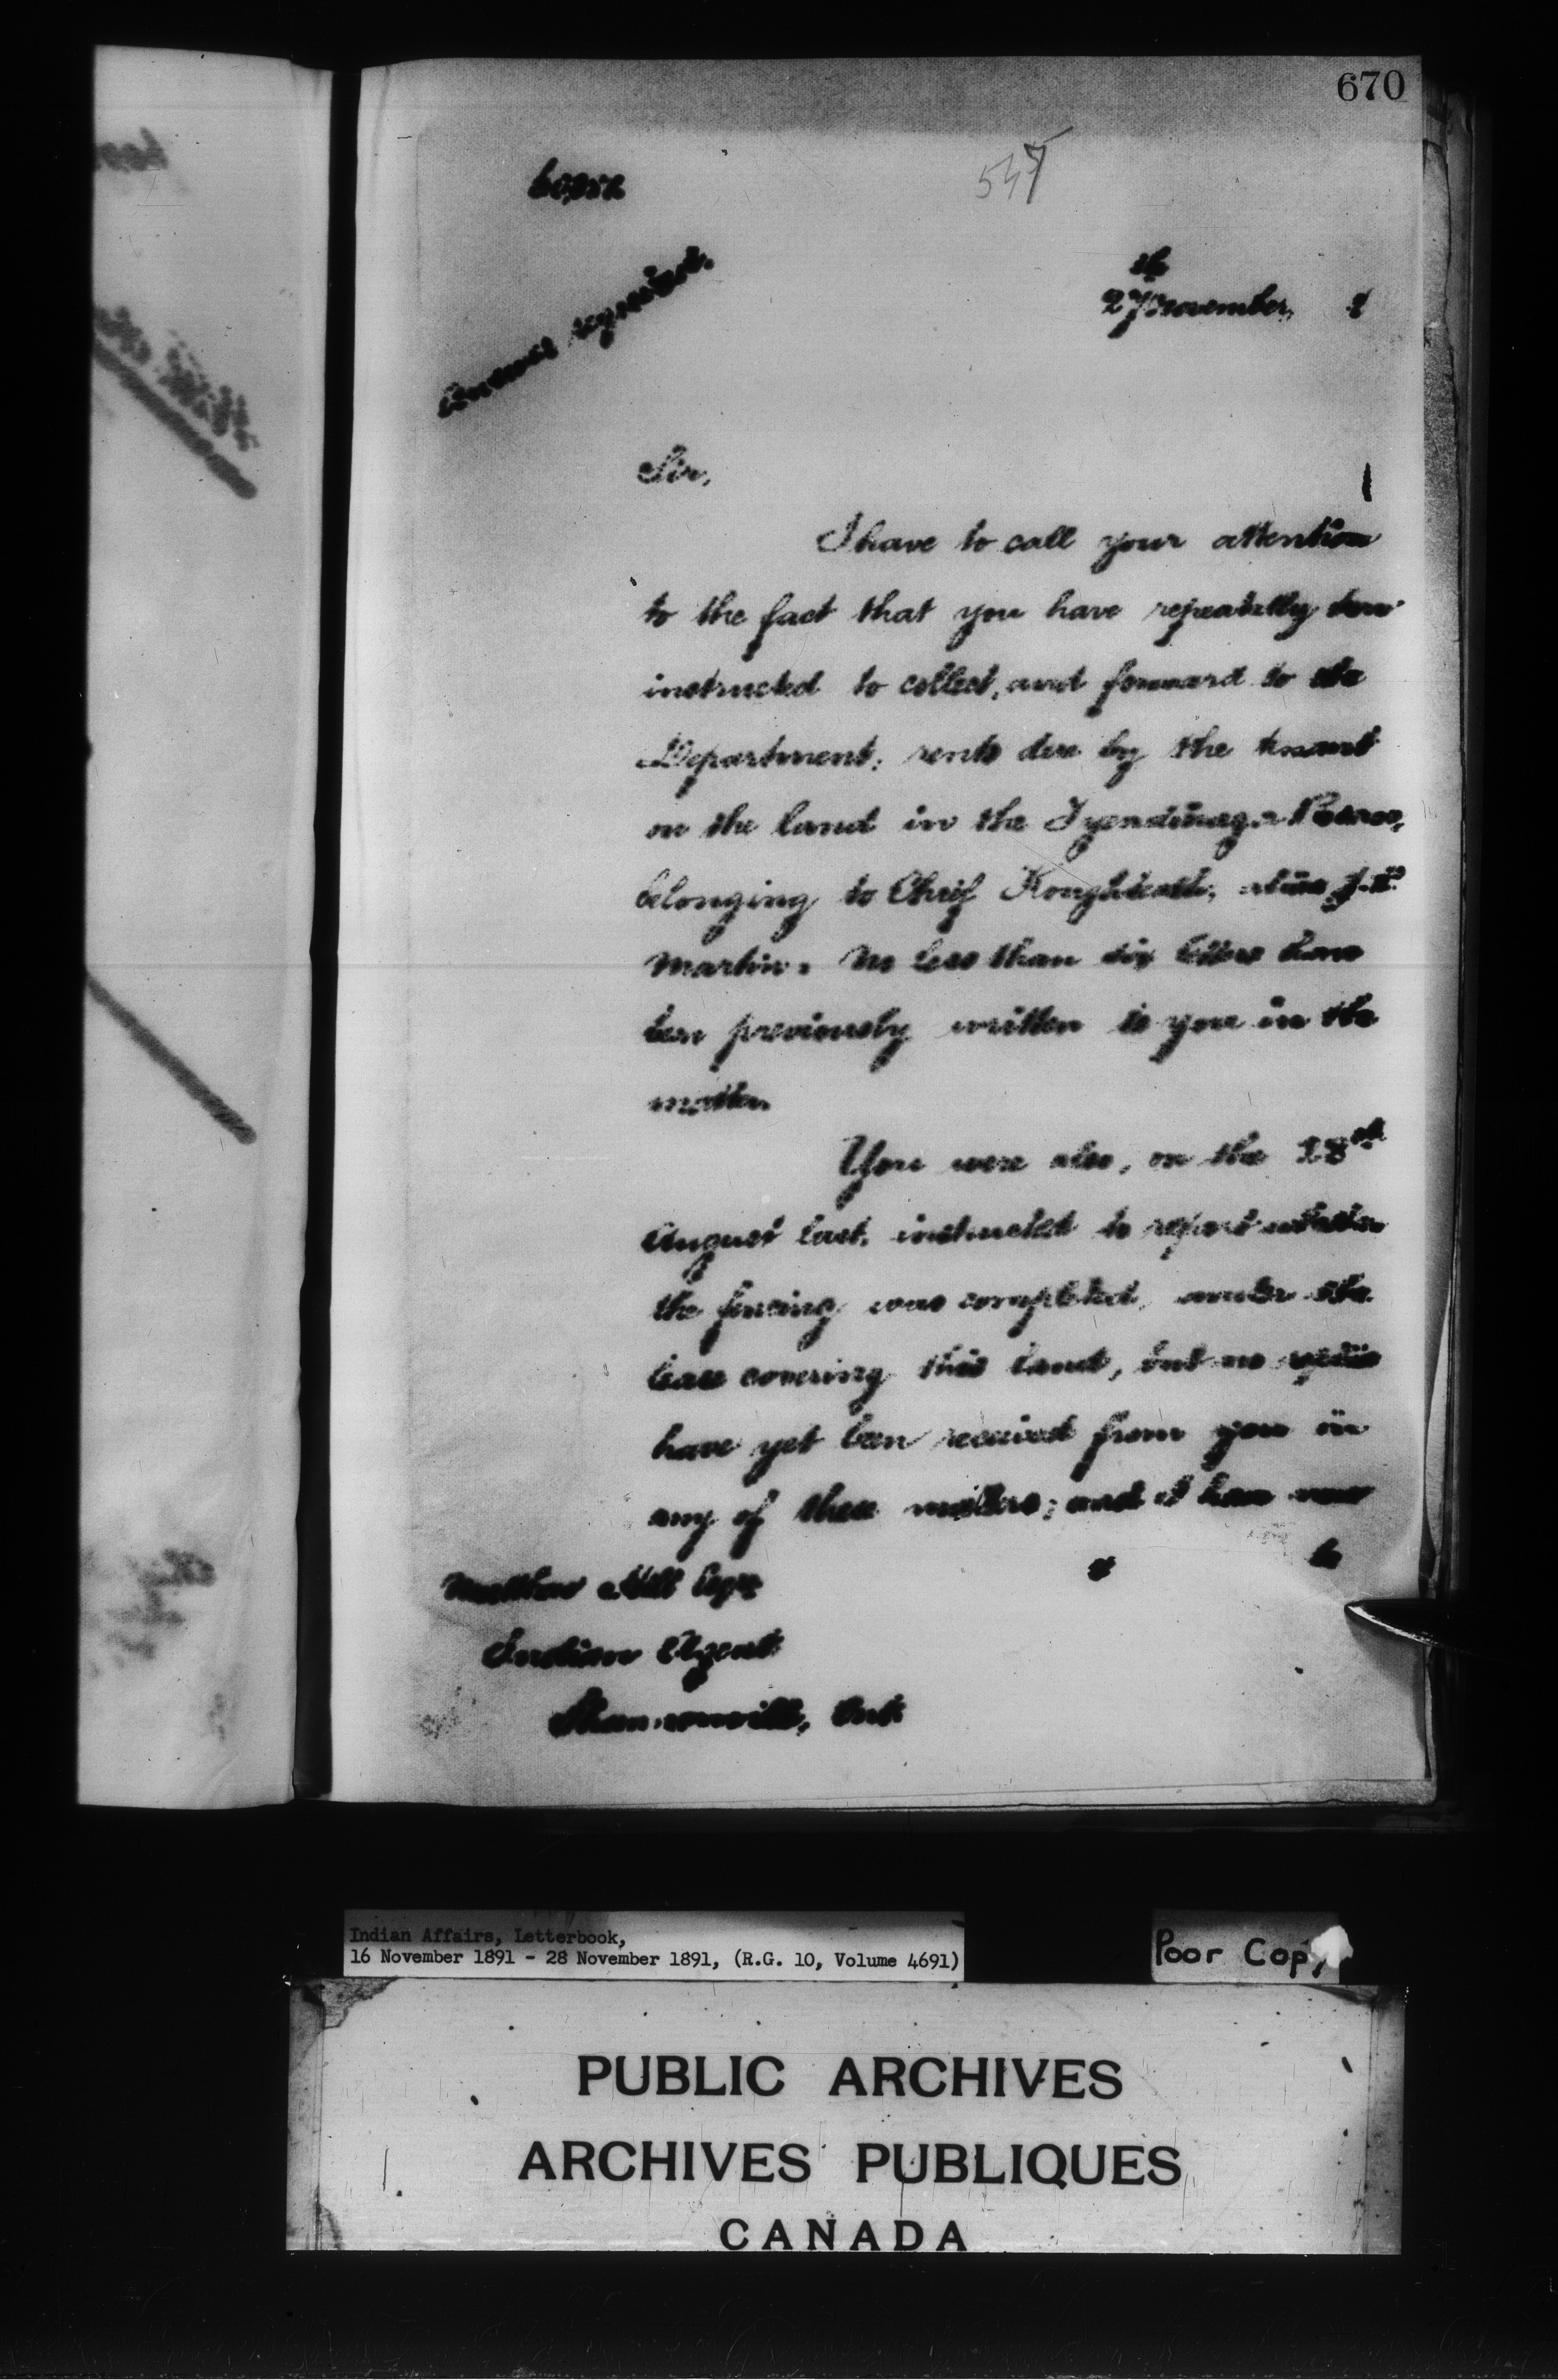 670
27th November, 1
Answer required.
Sir,
I have to call your attention
to the fact that you have repeatedly been
instructed to collect, and forward to the
Department, rents due by the tenant
on the land in the Tyendinaga Reserve,
belonging to Chief
Martin. No less than six letters have
been previously written to you in the
matter.
You were also, on the 28th
August last, instructed to report whether
the fencing was completed, under the
lease covering this land, but no replies
have yet been received from you in
any of these matters; and I have now
to
Matthew Hill Esqre
Indian Agent
Shannonville, Ont.
Indian Affairs, Letterbook,
16 November 1891 - 28 November 1891, (R.G. 10, Volume 4691)
Poor Copy
PUBLIC ARCHIVES
ARCHIVES PUBLIQUES
CANADA